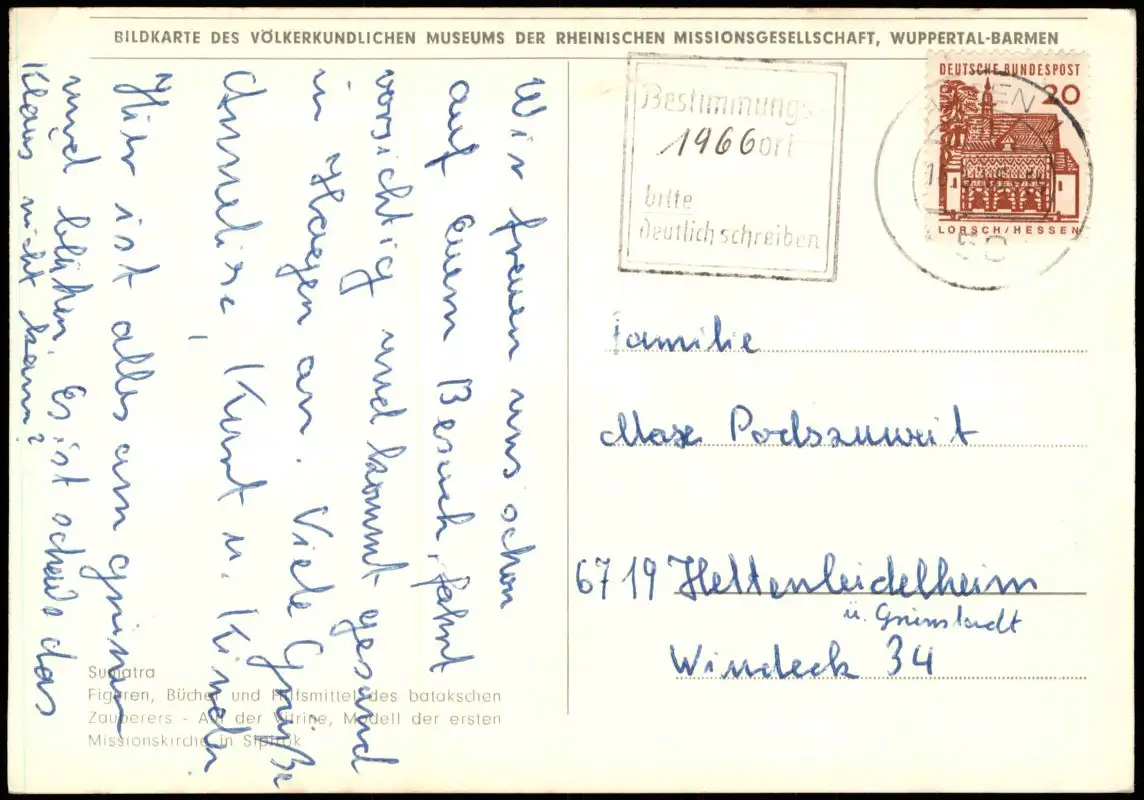 BILDKARTE DES VÖLKERKUNDLICHEN MUSEUMS DER RHEINISCHEN MISSIONSGESELLSCHAFT, WUPPERTAL-BARMEN
Wir freuen uns schon
auf euern Besuch, fahrt
vorsichtig und kommt gesund
in Hagen an. Viele Grüße
Annelise, Kurt u. Kinder
Hier ist alles am grünen
und blühen. Es ist schade das
Klaus nicht kann?
Sumatra
Figuren, Bücher und Hilfsmittel des batakschen
Zauberers - Auf der Vitrine, Modell der ersten
Missionskirche in Sipirok
Bestimmungs-
1966 ort
bitte
deutlich schreiben
DEUTSCHE BUNDESPOST
20
LORSCH/HESSEN
Familie
Max Podszuweit
6719 Hettenleidelheim
ü. Grünstadt
Windeck 34